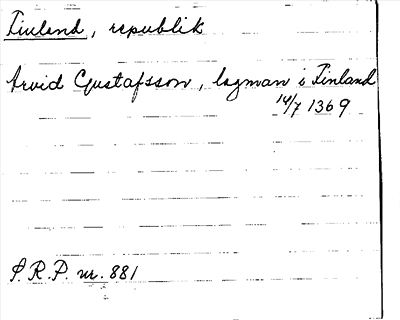 Finland, republik
Arvid Gustafsson, lagman i Finland
14/7 1369
S.R.P. nr. 881